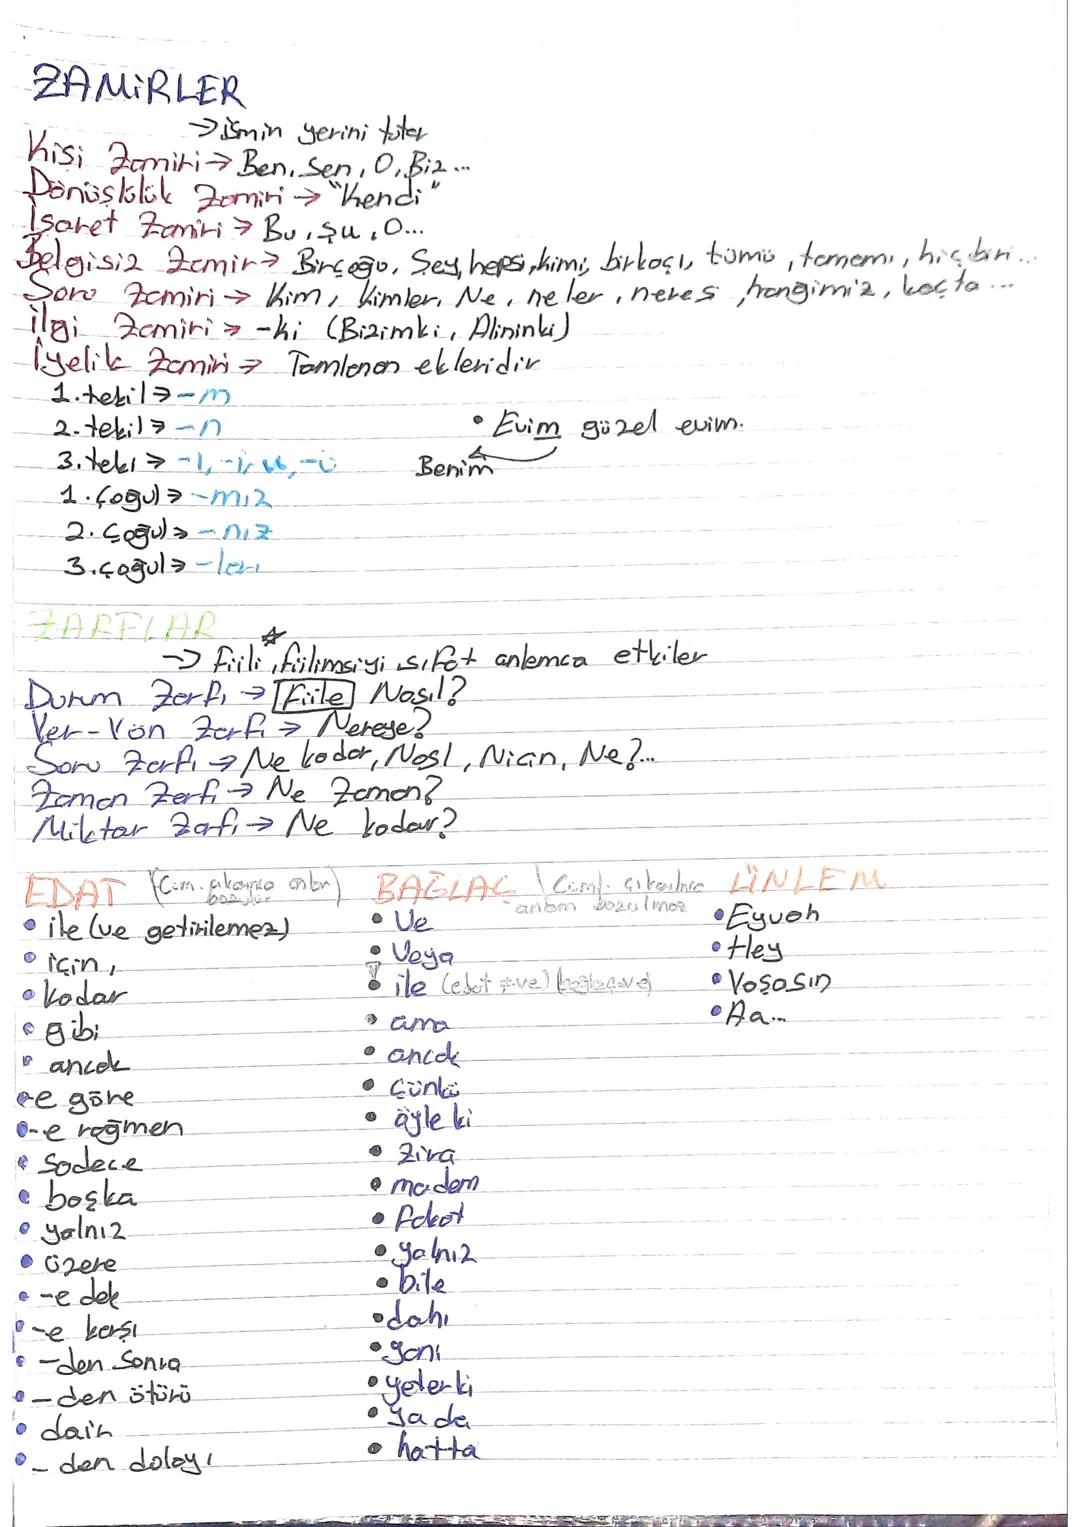 ZAMİRLER
→ ismin yerini tutar
Kişi Zamiri → Ben, Sen, O, Biz...
Dönüşlülük Zamiri → "Kendi"
İşaret Zamiri → Bu, şu, O...
Belgisiz Zamir → Birçoğu, Şey, hepsi, kimi, birkaçı, tümü, tamamı, hiçbiri...
Soru Zamiri → Kim, kimler, Ne, neler, neresi, hangimiz, kaçta...
İlgi Zamiri → -ki (Bizimki, Alininki)
İyelik Zamiri → Tamlanan ekleridir
1. tekil → -m
2. tekil → -n
• Evim güzel evim.
3. teki → -ı, -i, -u, -ü
Benim
1. çoğul → -mız
2. Çoğul → -nız
3. çoğul → -ları
ZARFLAR
→ fiili, fiilimsiyi sıfat anlamca etkiler
Durum Zarfı → Fiile Nasıl?
Yer-Yön Zarfı → Nereye?
Soru Zarfı → Ne kadar, Nasl, Niçin, Ne?...
Zaman Zarfı → Ne Zaman?
Miktar Zarfı → Ne kadar?
EDAT (Cüm. çıkarınca anlam bozulur) BAĞLAÇ (Cüml. çıkarılınca anlam bozulmaz ÜNLEM
• ile (ve getirilemez) • Ve • Eyvah
• için, • Veya • Hey
• kadar • ile (edat ≠ ve) bağlaç=ve) • Yaşasın
• gibi • ama • Aa...
• ancak • ancak
-e göre • Çünkü
• -e rağmen • öyle ki
• Sadece • zira
• başka • madem
• yalnız • fakat
• üzere • yalnız
• -e dek • bile
• -e karşı • dahi
• -den Sonra • yani
• -den ötürü • yeter ki
• dair • ya da
• -den dolayı • hatta